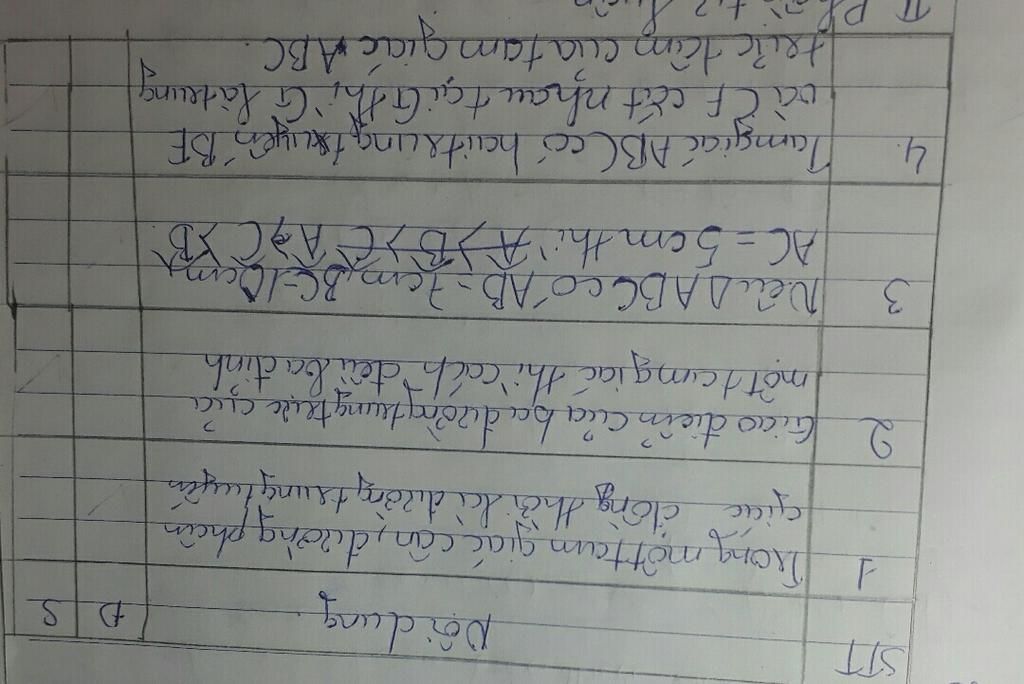 STT Nội dung Đ S
1 Trong một tam giác cân, đường phân
giác đồng thời là đường trung tuyến
2 Giao điểm của ba đường trung trực của
một tam giác thì cách đều ba đỉnh
3 Nếu ΔABC có AB = 7cm, BC = 10cm,
AC = 5cm thì A > B > C A > C > B
4. Tam giác ABC có hai trung tuyến BE
và CF cắt nhau tại G thì G là trung
trực tâm của tam giác ABC.
II Phần tự luận